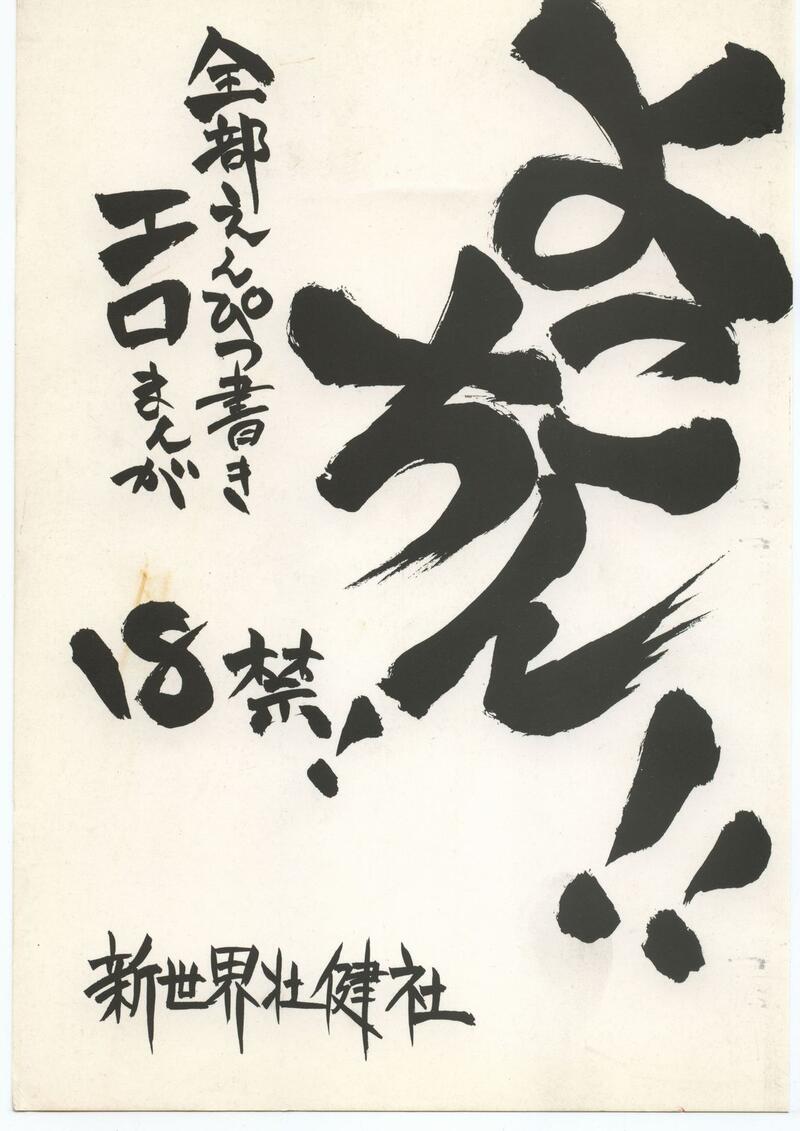 よつこ
ちん!!
全部えんぴつ書き
エロまんが
18禁!
新世界壮健社